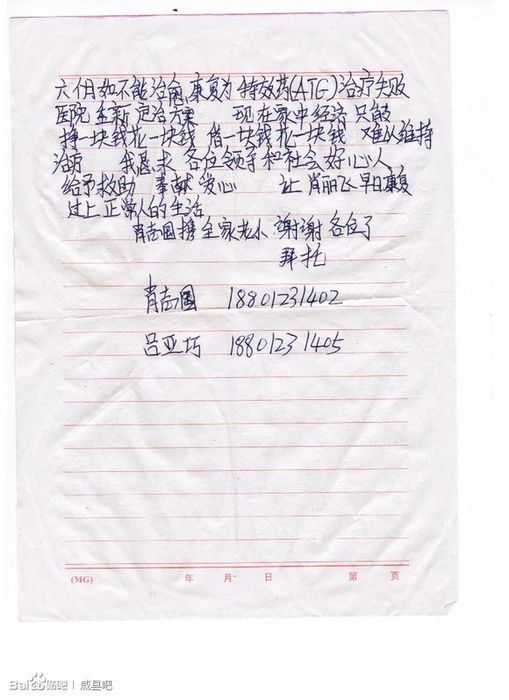 六个月如不能治愈,康复为特效药(ATG)治疗失败
医院全新定治方案 现在家中经济只能
挣一块钱花一块钱 借一块钱花一块钱 难以维持
治疗 我恳求各位领导和社会好心人
给予救助 奉献爱心 让肖丽飞早日康复
过上正常人的生活
肖志国携全家老小 谢谢各位了
拜托
肖志国 18801231402
吕亚巧 18801231405
(MG) 年 月 日 第 页
Baidu贴吧 | 威县吧